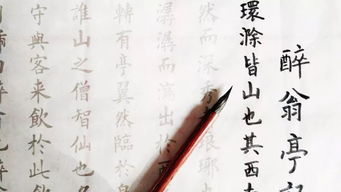 醉翁亭
環滁皆山也其西
然而深秀琅琊
潺潺而瀉出於
轉有亭翼然臨於
誰山之僧智仙也名
守與客来飲於此飲